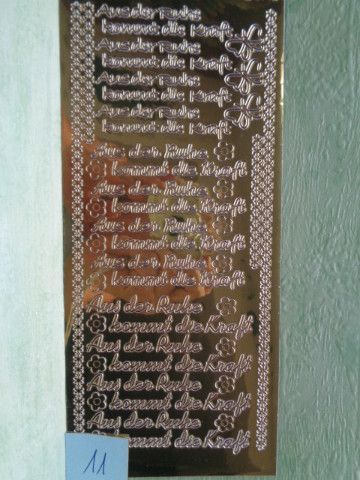 Aus der Ruhe
kommt die Kraft
Aus der Ruhe
kommt die Kraft
Aus der Ruhe
kommt die Kraft
Aus der Ruhe
kommt die Kraft
Aus der Ruhe
kommt die Kraft
Aus der Ruhe
kommt die Kraft
Aus der Ruhe
kommt die Kraft
Aus der Ruhe
kommt die Kraft
Aus der Ruhe
kommt die Kraft
Aus der Ruhe
kommt die Kraft
Aus der Ruhe
kommt die Kraft
Aus der Ruhe
kommt die Kraft
11